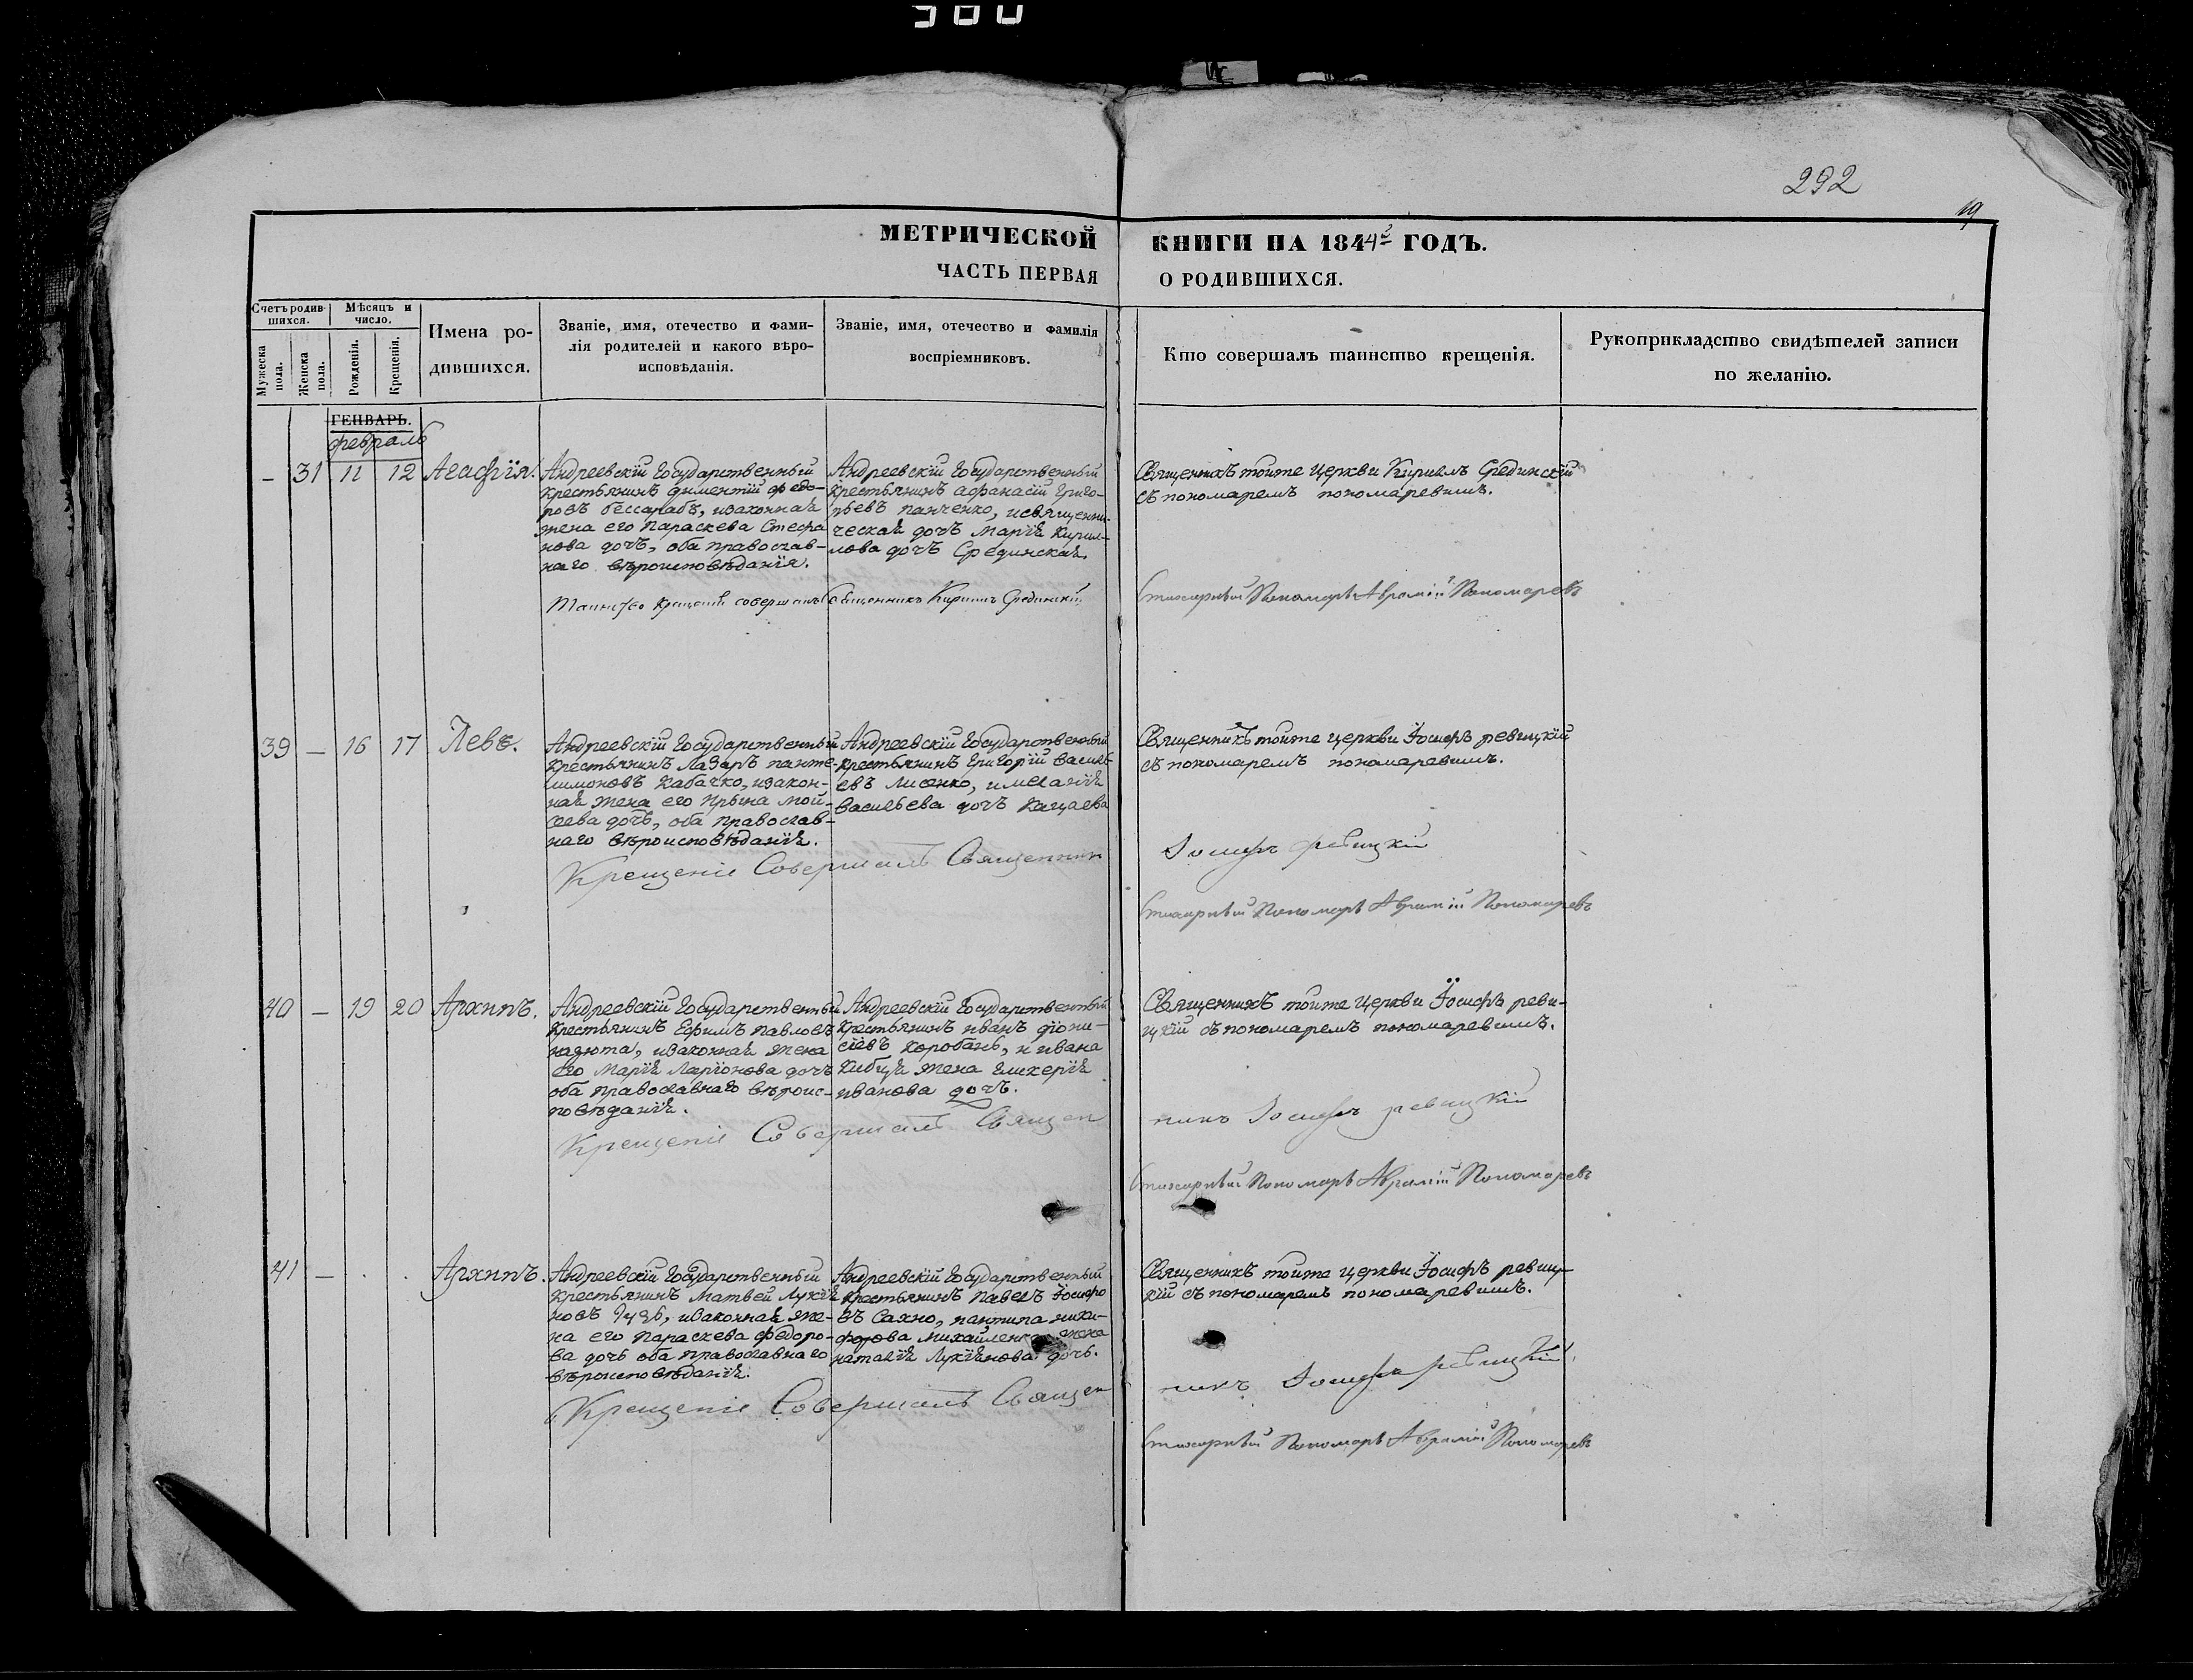 500
292
19
МЕТРИЧЕСКОЙ КНИГИ НА 1844й ГОДЪ.
ЧАСТЬ ПЕРВАЯ О РОДИВШИХСЯ.
Счетъ родив-
шихся.
Мужеска пола.
Женска пола.
Мѣсяцъ и
число.
Рожденія.
Крещенія.
Имена ро-
дившихся.
Званіе, имя, отечество и фами-
лія родителей и какого вѣро-
исповѣданія.
Званіе, имя, отечество и фамилія
воспріемниковъ.
Кто совершалъ таинство крещенія.
Рукоприкладство свидѣтелей записи
по желанію.
ГЕНВАРЬ.
февраль
— 31 11 12 Агафїя.
Андреевскїй Государственный
крестьянинъ диментїй федо-
ровъ бессарабъ, изаконная
жена его Параскева Стефа
нова дочь, оба православ-
наго вѣроисповѣданїя.
Андреевскїй Государственный
крестьянинъ афанасїй Григо-
рьевъ панченко, исвященни-
ческая дочь Марїя Кирил-
лова дочь Срединская.
Священникъ тойже церкви Кирилъ Срединскїй
съ пономаремъ пономаревымъ.
Таинство крещенія совершалъ Священникъ Кирилъ Срединскій
Стихарный Пономарь Аврамій Пономаревъ
39 — 16 17 Левъ.
Андреевскїй Государственный
крестьянинъ Лазарь панте-
лимоновъ Кабачко, изакон-
ная жена его Ирына мой-
сеева дочь, оба православ-
наго вѣроисповѣданїя.
Андреевскїй Государственный
крестьянинъ Григорїй василь-
евъ Лисенко, имеланїя
васильева дочь Кацаева
Священникъ тойже церкви Їосифъ ревицкїй
съ пономаремъ пономаревымъ.
Крещеніе Совершалъ Священник
Іосифъ Ревицкій
Стихарный Пономарь Аврамій Пономаревъ
40 — 19 20 Архипъ.
Андреевскїй Государственный
крестьянинъ Ефимъ павловъ
надюта, изаконная жена
его Марїя Ларїонова дочь
оба православнаго вѣроис-
повѣданїя.
Андреевскїй Государственный
крестьянинъ иванъ дїони-
сїевъ коробань, и ивана
Кибця жена гликерїя
иванова дочь.
Священникъ тойже церкви Їосифъ реви-
цкїй съ пономаремъ пономаревымъ.
Крещеніе Совершалъ Священ
никъ Іосифъ Ревицкій
Стихарный Пономарь Аврамій Пономаревъ
41 — . . Архипъ.
Андреевскїй Государственный
крестьянинъ Матвей Лукїя
новъ изаконная же-
на его Параскева федоро-
ва дочь оба православнаго
вѣроисповѣданїя.
Андреевскїй Государственный
крестьянинъ Павелъ Їосифо
въ Сахно, пантипа ники-
форова михайленка жена
наталїя Лукїянова дочь.
Священникъ тойже церкви Їосифъ ревиц-
кїй съ пономаремъ пономаревымъ.
Крещеніе Совершалъ Священ
никъ Іосифъ Ревицкій
Стихарный Пономарь Аврамій Пономаревъ